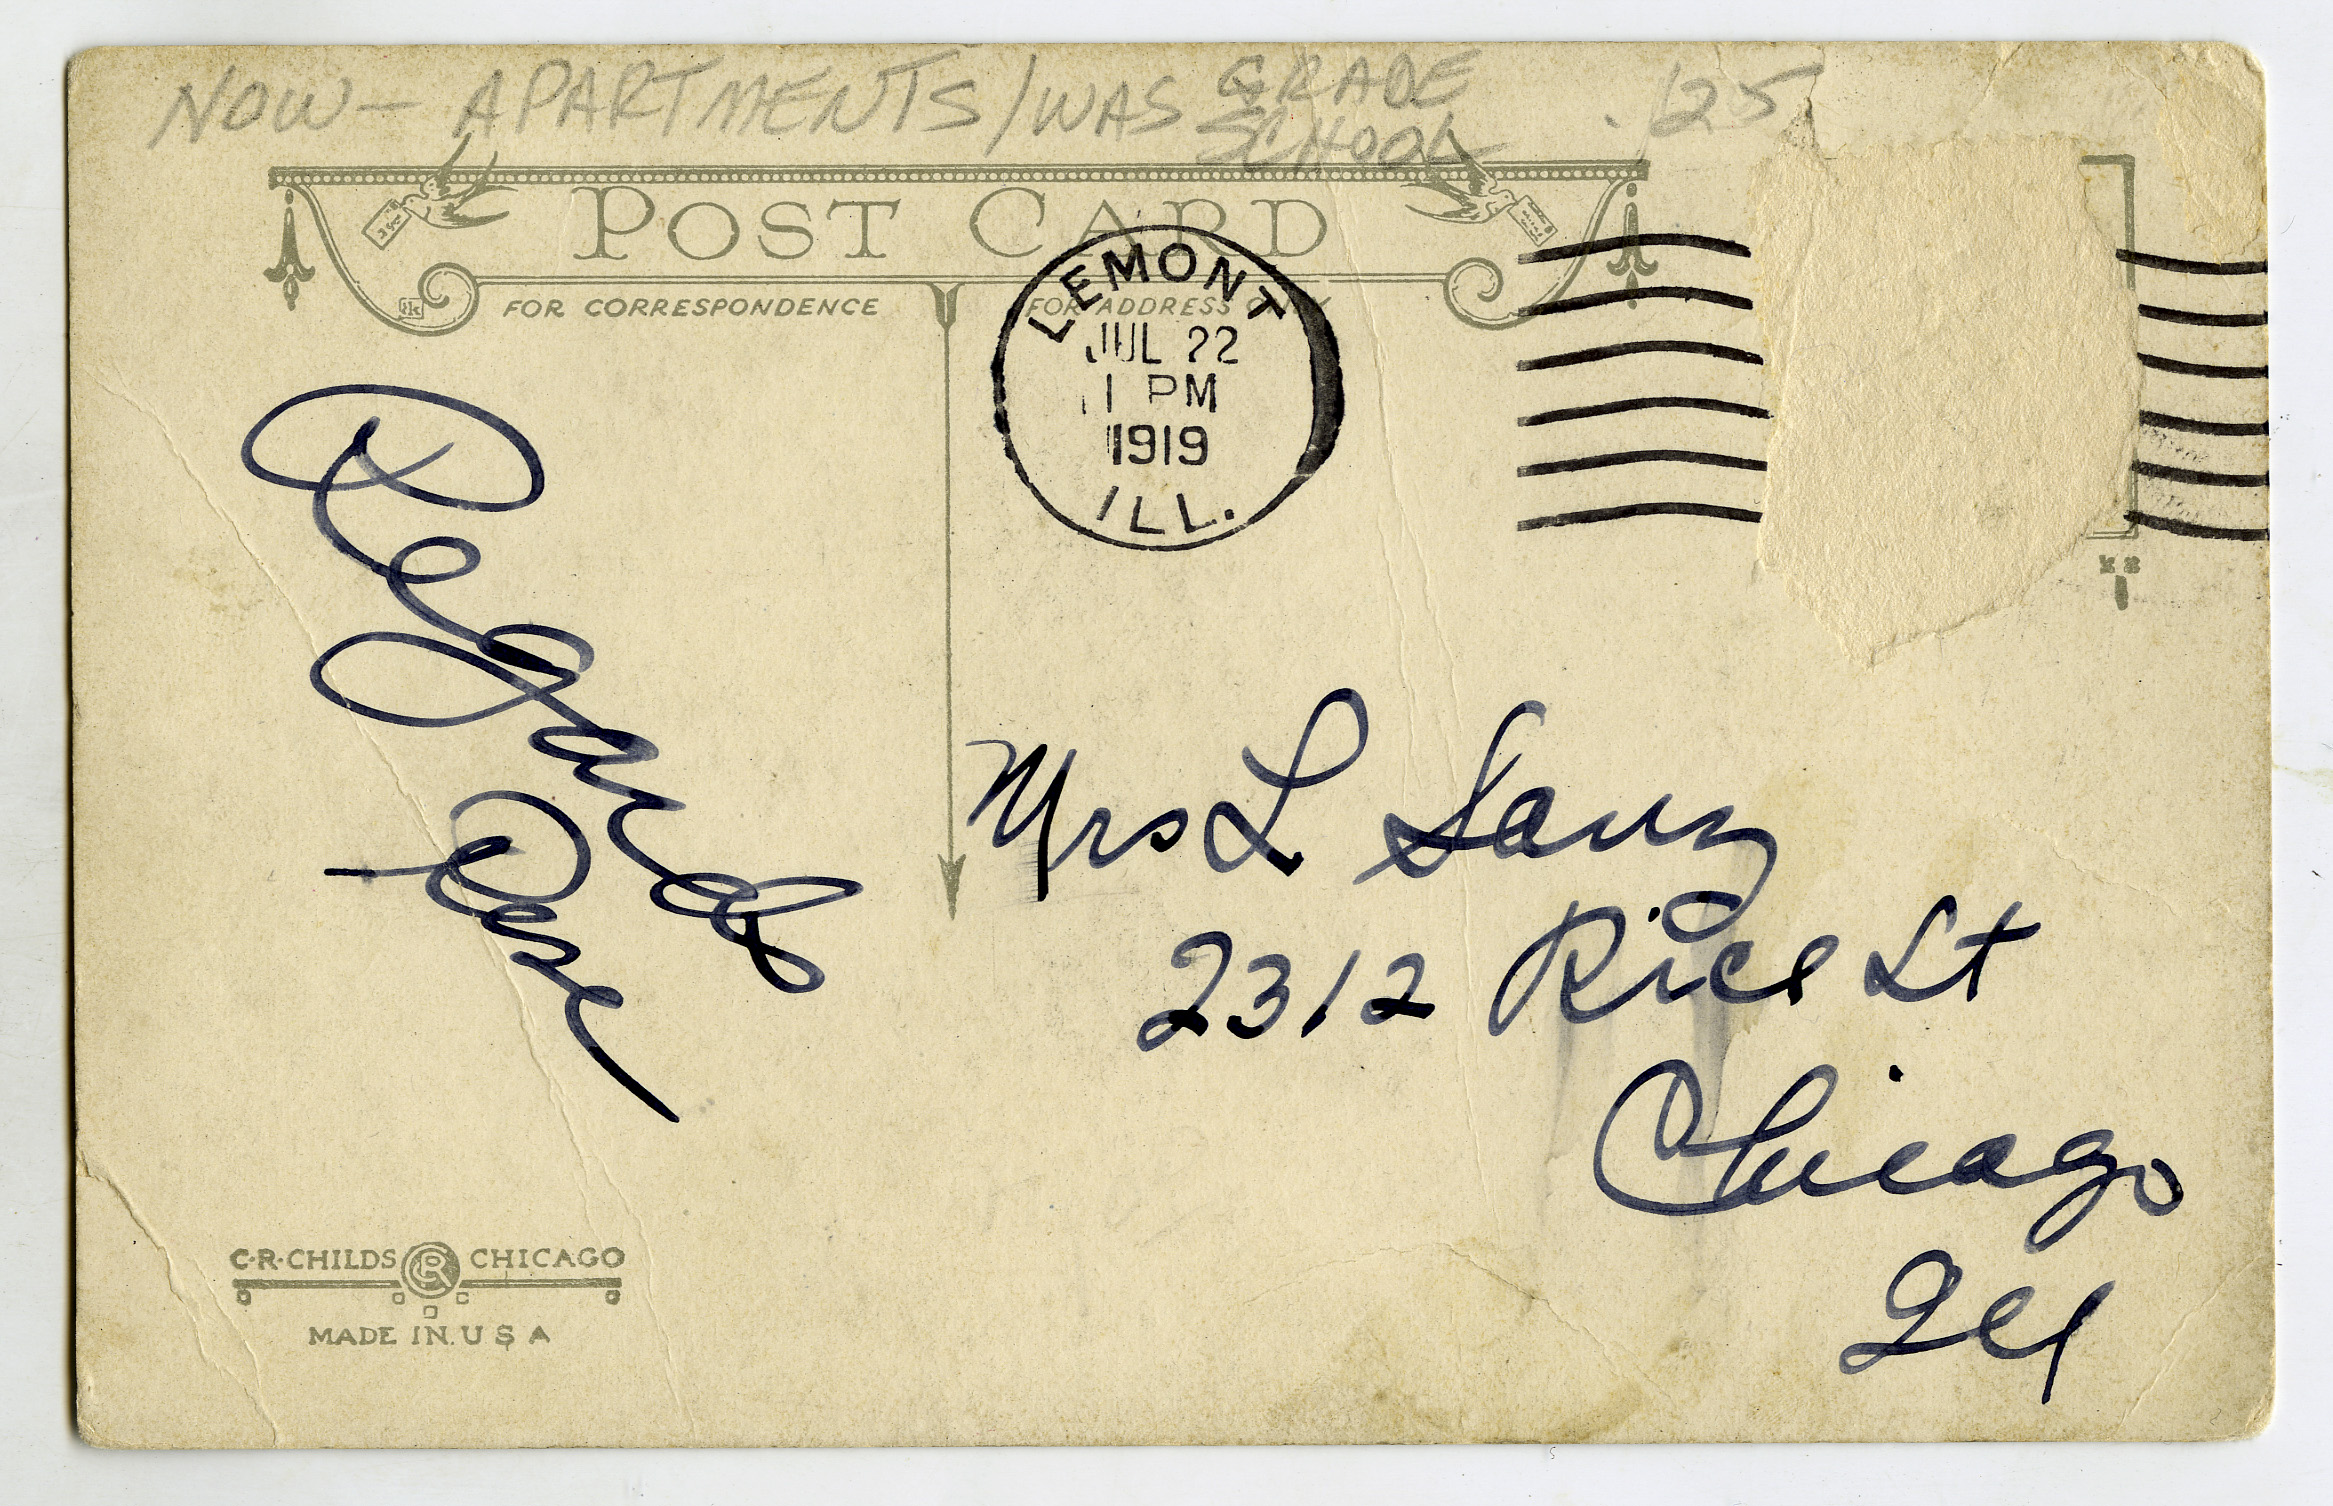 NOW - APARTMENTS / WAS GRADE SCHOOL .125
POST CARD
FOR CORRESPONDENCE
FOR ADDRESS ONLY
LEMONT
JUL 22
1 PM
1919
ILL.
Regards
Mrs L
2312 Rice St
Chicago
Ill
C·R·CHILDS CR CHICAGO
MADE IN U S A